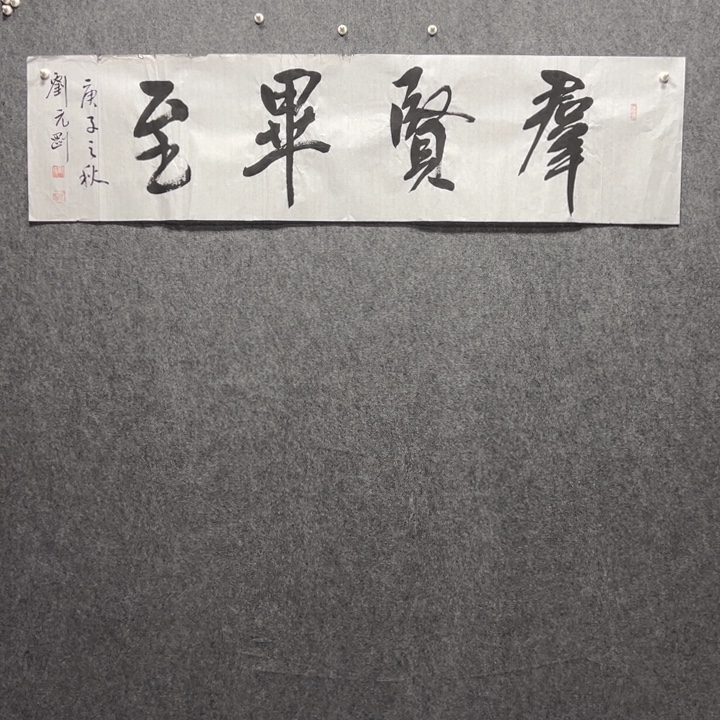 羣賢畢至
庚子之秋
劉元罡